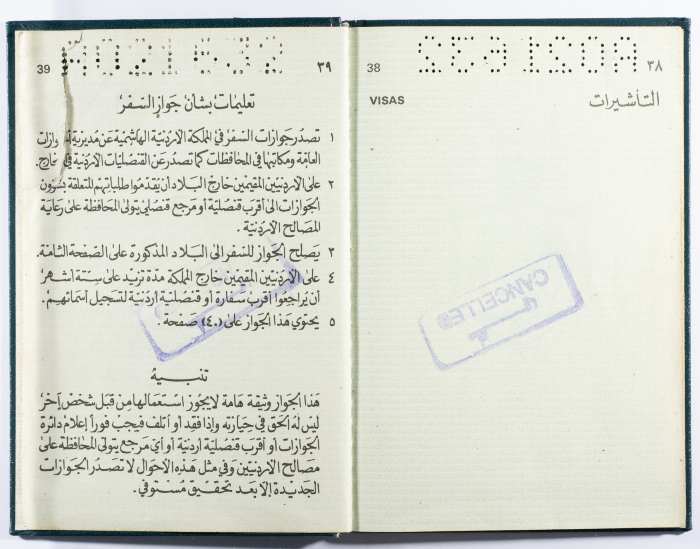 38
٣٨
VISAS
التأشيرات
CANCELLED
39
٣٩
تعليمات بشأن جواز السفر
١ تصدر جوازات السفر في المملكة الاردنية الهاشمية عن مديرية
العامة ومكاتبها في المحافظات كما تصدر عن القنصليات الاردنية في خارج.
٢ على الاردنيين المقيمين خارج البلاد أن يقدموا طلباتهم المتعلقة بشؤون
الجوازات الى أقرب قنصلية أو مرجع قنصلي يتولى المحافظة على رعاية
المصالح الاردنية.
٣ يصلح الجواز للسفر الى البلاد المذكورة على الصفحة الثامنة.
٤ على الاردنيين المقيمين خارج المملكة مدة تزيد على ستة أشهر
أن يراجعوا أقرب سفارة أو قنصلية أردنية لتسجيل أسمائهم.
٥ يحتوي هذا الجواز على (٤٠) صفحة.
تنبيه
هذا الجواز وثيقة هامة لا يجوز استعمالها من قبل شخص آخر
ليس له الحق في حيازته وإذا فقد أو أتلف فيجب فوراً إعلام دائرة
الجوازات أو أقرب قنصلية أردنية أو أي مرجع يتولى المحافظة على
مصالح الاردنيين وفي مثل هذه الاحوال لا تصدر الجوازات
الجديدة إلا بعد تحقيق مستوفي.